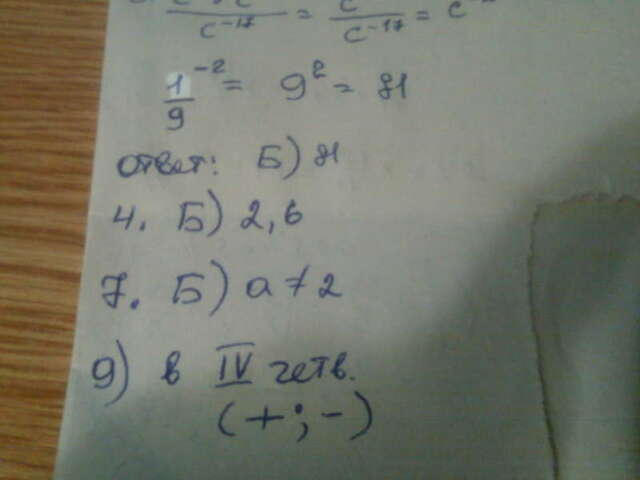 c⁻¹⁷ = c⁻¹⁷ = c
1/9⁻² = 9² = 81
ответ: Б) 81
4. Б) 2,6
7. Б) a ≠ 2
9) в IV четв.
(+;-)